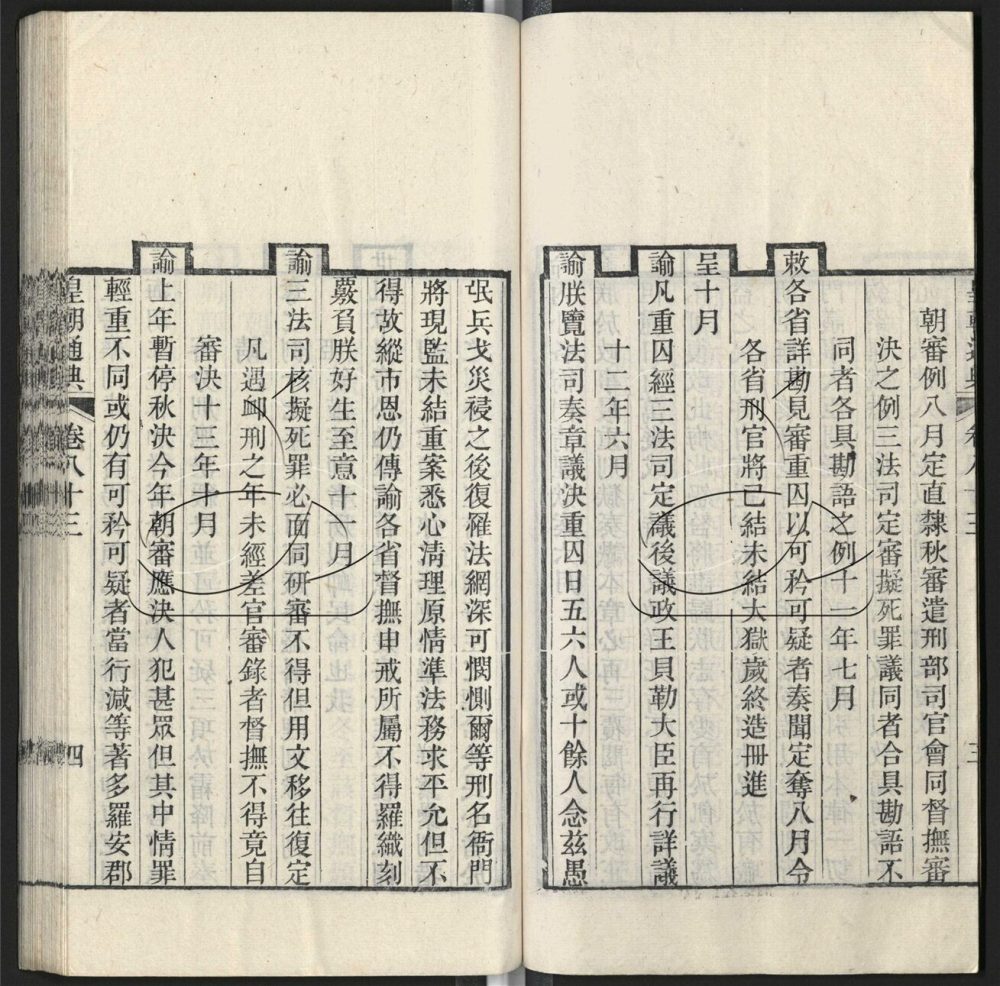 朝審例八月定直隸秋審遣刑部司官會同督撫審
決之例三法司定審擬死罪議同者合具勘語不
同者各具勘語之例十一年七月
敕各省詳勘見審重囚以可矜可疑者奏聞定奪八月令
各省刑官將已結未結大獄歲終造冊進
呈十月
諭凡重囚經三法司定議後議政王貝勒大臣再行詳議
十二年六月
諭朕覽法司奏章議決重囚日五六人或十餘人念茲愚
三
氓兵戈災祲之後復罹法網深可憫惻爾等刑名衙門
將現監未結重案悉心清理原情準法務求平允但不
得故縱市恩仍傳諭各省督撫申戒所屬不得羅織刻
覈負朕好生至意十一月
諭三法司核擬死罪必面同研審不得但用文移往復定
凡遇卹刑之年未經差官審錄者督撫不得竟自
審決十三年十月
諭上年暫停秋決今年朝審應決人犯甚眾但其中情罪
輕重不同或仍有可矜可疑者當行減等著多羅安郡
皇朝通典 卷八十三 四